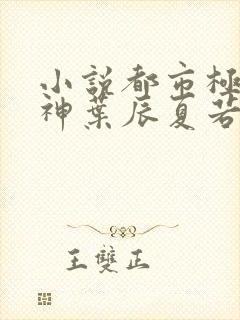 小説都市極
神葉辰夏若
王雙正